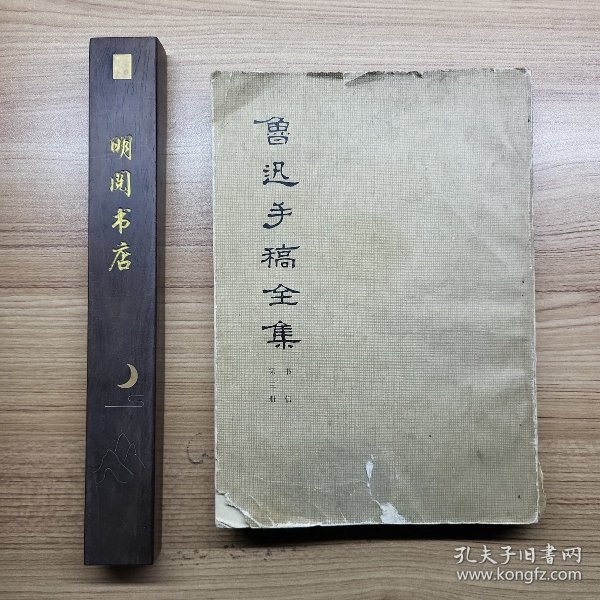 明阅书店
魯迅手稿全集
书信
第三册
孔夫子旧书网
www.kongfz.com